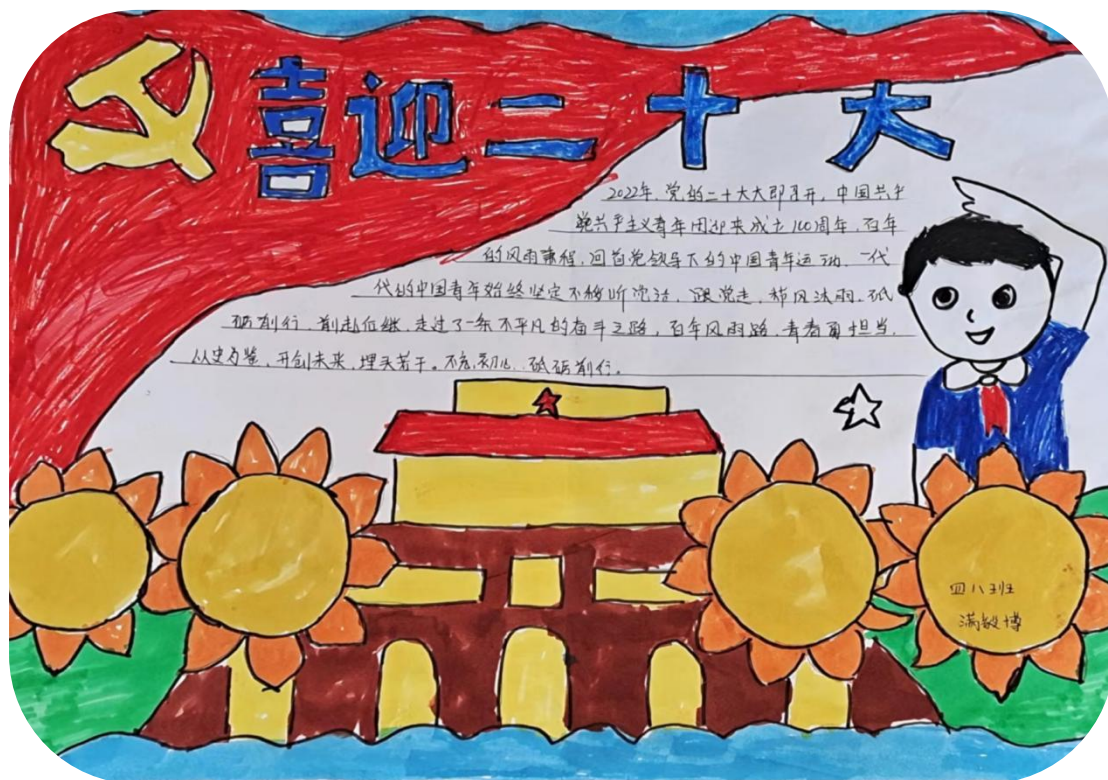 喜迎二十大
2022年,党的二十大大即召开,中国共产
党共产主义青年团迎来成立100周年,百年
的风雨兼程,回首党领导下的中国青年运动,一代
代的中国青年始终坚定不移听党话,跟党走,栉风沐雨,砥
砺前行,前赴后继,走过了一条不平凡的奋斗之路,百年风雨路,青春勇担当,
以史为鉴,开创未来,埋头苦干。不忘初心,砥砺前行。
四八班
满毅博